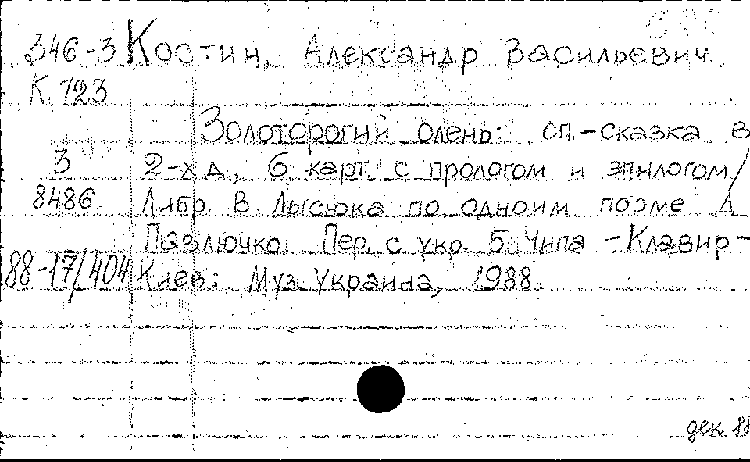 346-3 Костин, Александр Васильевич
К 723
Золоторогий олень: оп.-сказка в
3 2-х д., 6 карт. с прологом и эпилогом/
8486 Либр. В. Лысюка по одноим. поэме Д.
Павлычко. Пер. с укр. Б. Чипа -Клавир-
88-17/404 Киев: Муз. Украина, 1988.
дек. 88